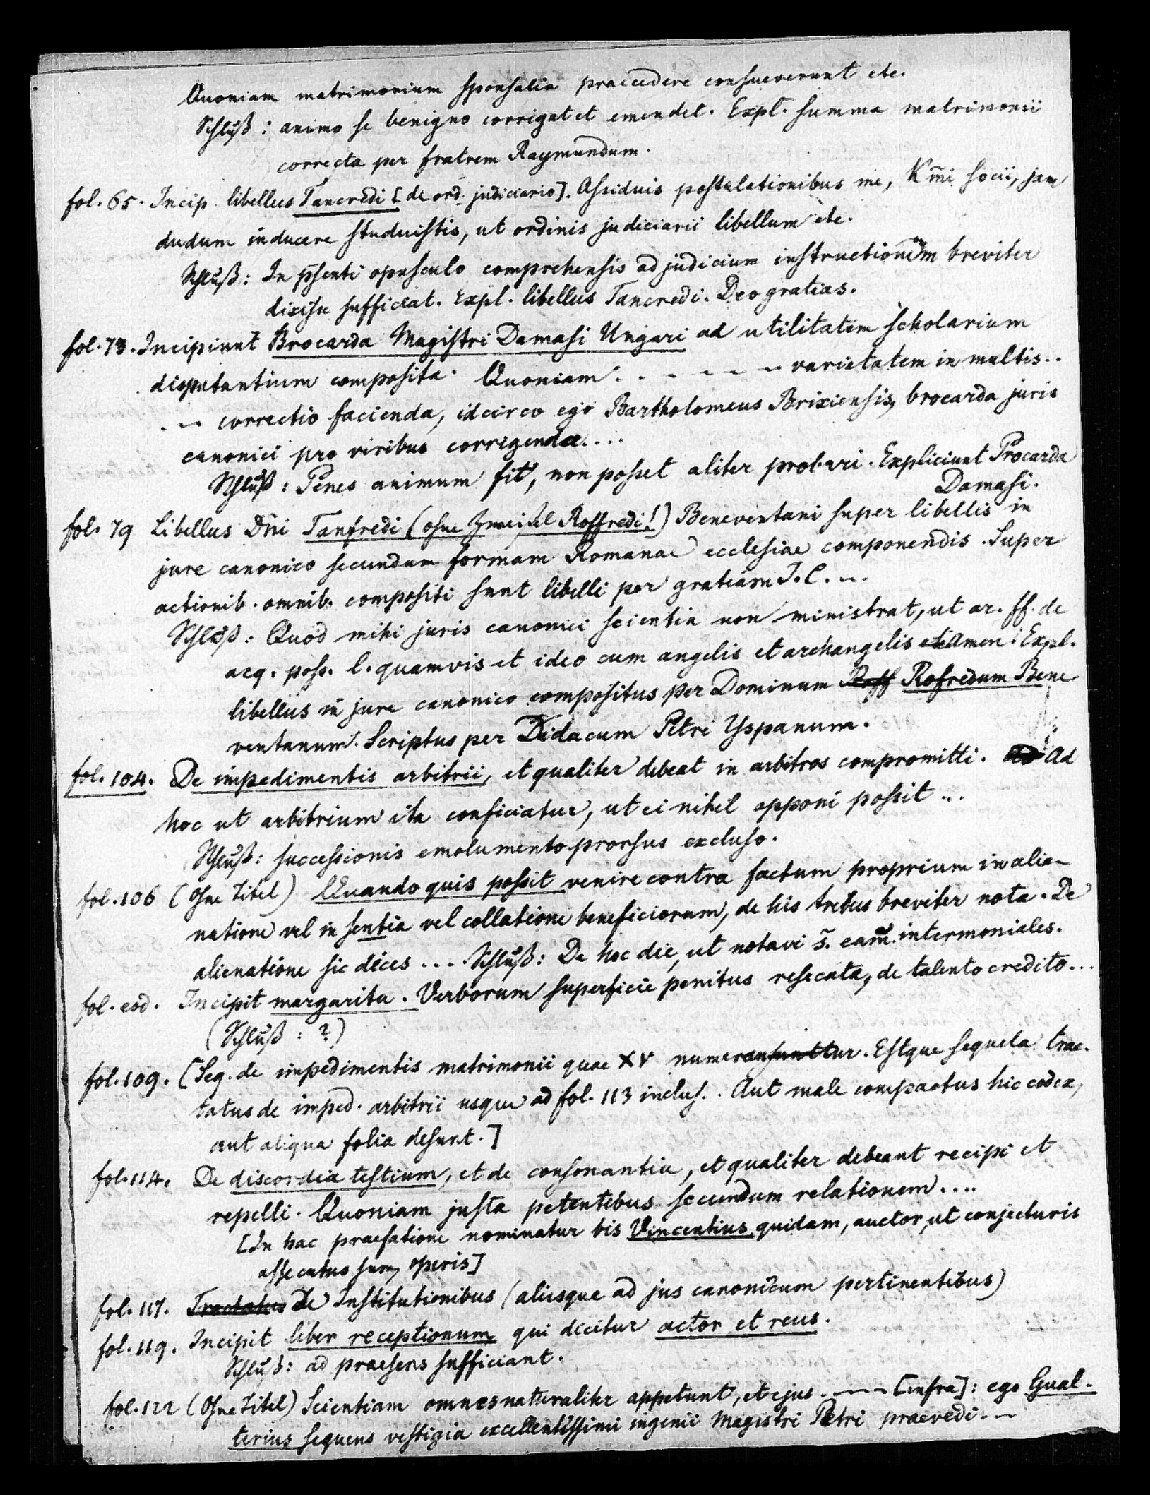 Quoniam matrimonium sponsalia praecedere consueverunt etc.
Schluß: animo se benigno corrigat et emendet. Expl. summa matrimonii
correcta per fratrem Raymundum.
fol. 65. Incip. libellus Tancredi [de ord. judiciario]. Assiduis postulationibus me, K̅m̅i socii, jam
dudum inducere studuistis, ut ordinis judiciarii libellum etc.
Schluß: In p̅senti opusculo comprehensis ad judicium instructionum breviter
dixisse sufficiat. Expl. libellus Tancredi. Deo gratias.
fol. 73. Incipiunt Brocarda Magistri Damasi Ungari ad utilitatem scholarium
disputantium composita. Quoniam . - - - - - varietatem in multis..
. -- correctio facienda, idcirco ego Bartholomeus Brixiensis, brocarda juris
canonici pro viribus corrigenda....
Schluß: Penes animum fit, non posset aliter probari. Expliciunt Brocarda
Damasi.
fol. 79 Libellus Dn̅i Tanfredi (ohne Zweifel Roffredi!) Beneventani super libellis in
jure canonico secundum formam Romanae ecclesiae componendis. Super
actionib. omnib. compositi sunt libelli per gratiam J. C. --.
Schluß: Quod mihi juris canonici scientia non ministrat, ut ar. ff. de
acq. poss. l. quamvis et ideo cum angelis et archangelis Amen. Expl.
libellus in jure canonico compositus per Dominum Roff Rofredum Bene
ventanum. Scriptus per Didacum Petri Yspanum.
fol. 104. De impedimentis arbitrii, et qualiter debeat in arbitros compromitti. Ad
hoc ut arbitrium ita conficiatur, ut ei nihil opponi possit ...
Schluß: successionis emolumento prorsus excluso.
fol. 106 (Ohne Titel) Quando quis possit venire contra factum proprium in alie-
natione vel in sentia vel collatione beneficiorum, de his tribus breviter nota. De
alienatione sic dices .... Schluß: De hoc dic, ut notavi s̅. ea̅m̅. intermoniales.
fol. eod. Incipit margarita. Verborum superficie penitus resecata, de talento credito...
(Schluß: ?)
fol. 109. [Seq. de impedimentis matrimonii quae XV numerantur. Estque sequela trac-
tatus de imped. arbitrii usque ad fol. 113 inclus. Aut male compactus hic codex,
aut aliqua folia desunt.]
fol. 114. De discordia testium, et de consonantia, et qualiter debeant recipi et
repelli. Quoniam justa petentibus secundum relationem....
[In hac praefatione nominatur bis Vincentius quidam, auctor, ut conjecturis
assecutus sum, operis]
fol. 117. Tractatus De Institutionibus (aliisque ad jus canonicum pertinentibus)
fol. 119. Incipit liber receptionum qui dicitur actor et reus.
Schluß: ad praesens sufficiant.
fol. 122 (Ohne Titel) Scientiam omnes naturaliter appetunt, et ejus. --- [infra]: ego Gual-
terius sequens vestigia excellentissimi ingenii Magistri Petri praevedi. --